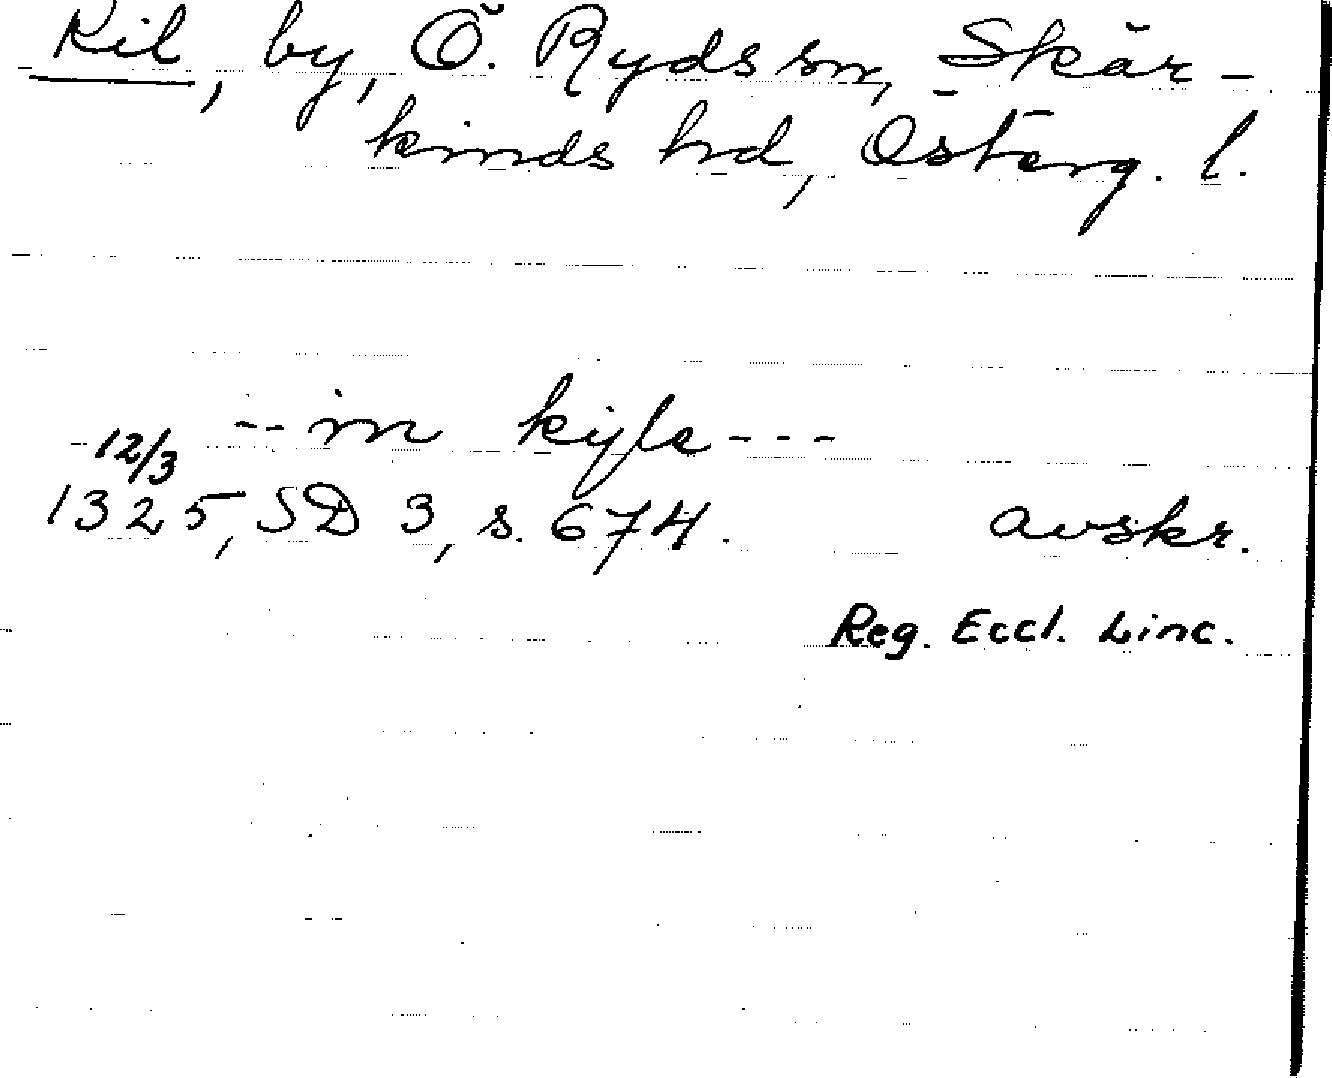 Kil, by, Ö. Ryds sn, Skär-
kinds hd, Österg. l.
-- in kijle ---
12/3
1325, SD 3, s. 674. avskr.
Reg. Eccl. Linc.